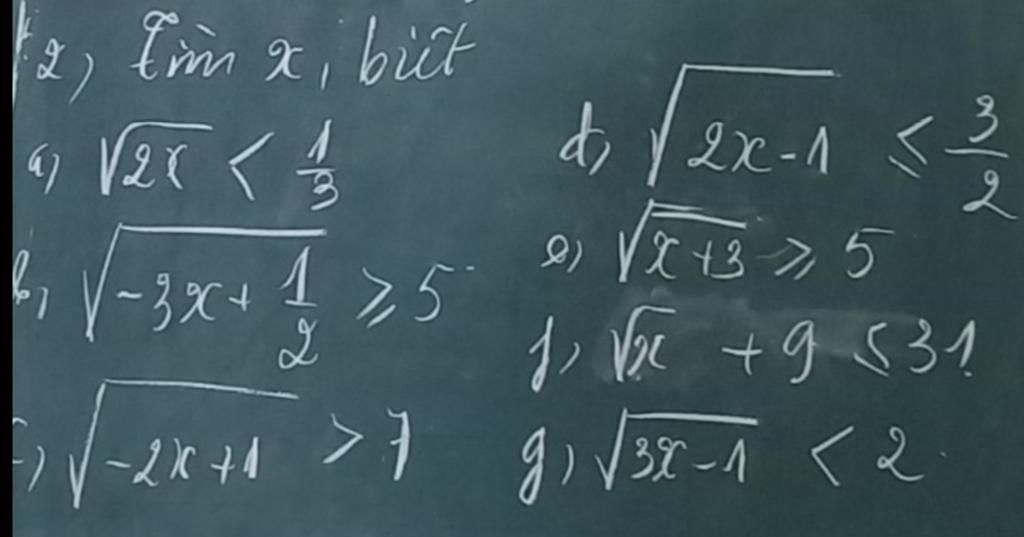 2, Tìm x, biết
a, √2x < 1/3
b, √-3x + 1/2 ⩾ 5
c, √-2x+1 > 7
d, √2x-1 ≤ 3/2
e, √x+3 ⩾ 5
f, √x + 9 ≤ 31
g, √3x-1 < 2